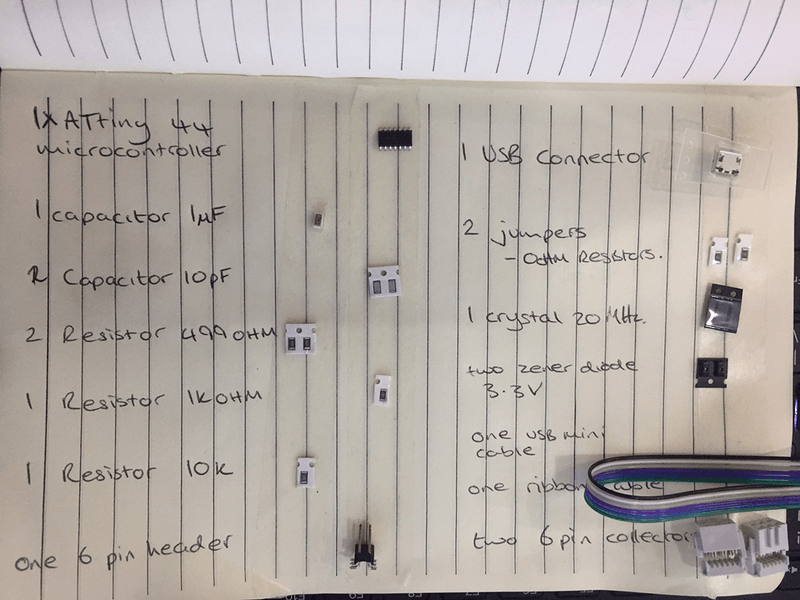 1x ATTiny 44
microcontroller
1 capacitor 1µF
2 Capacitor 10pF
2 Resistor 499 OHM
1 Resistor 1K OHM
1 Resistor 10K
one 6 pin header
1 USB Connector
2 jumpers
- 0OHM Resistors.
1 crystal 20 MHz.
two zener diode
3.3V
one USB mini
cable
one ribbon cable
two 6 pin collector